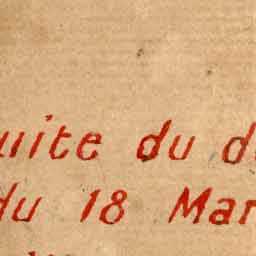 uite du d
du 18 Mar